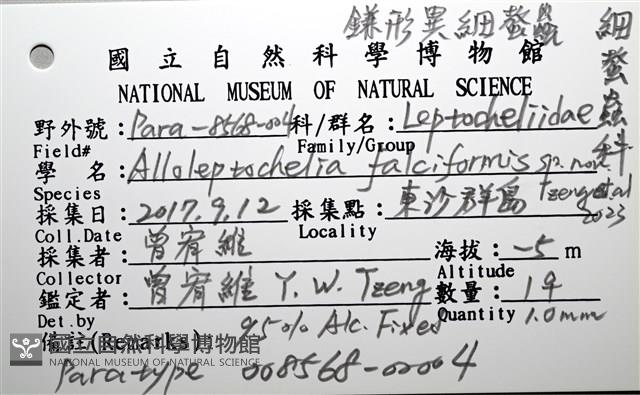 鎌形異細螯蟲 細螯蟲科
國立自然科學博物館
NATIONAL MUSEUM OF NATURAL SCIENCE
野外號：Para-8568-004 科/群名：Leptocheliidae
Field# Family/Group
學名：Alloleptochelia falciformis sp. nov.
Species Tzeng et al 2023
採集日：2017.9.12 採集點：東沙群島
Coll.Date Locality
採集者：曾宥維 海拔：-5 m
Collector Altitude
鑑定者：曾宥維 Y. W. Tzeng 數量：1♀
Det.by Quantity 1.0mm
備註(Remarks) 95% Alc. Fixed
國立自然科學博物館
NATIONAL MUSEUM OF NATURAL SCIENCE
Paratype 008568-00004